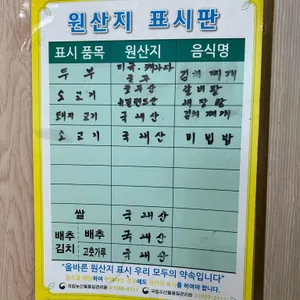 원산지 표시판
표시 품목 원산지 음식명
두부 미국, 캐나다 김치 찌개
중국
소고기 호주산 갈비탕
뉴질랜드산
돼지 고기 국내산 김치 찌개
소고기 국내산 비빔밥
쌀 국내산
배추 배추 국내산
김치 고춧가루 국내산
"올바른 원산지 표시 우리 모두의 약속입니다"
국립농산물품질관리원